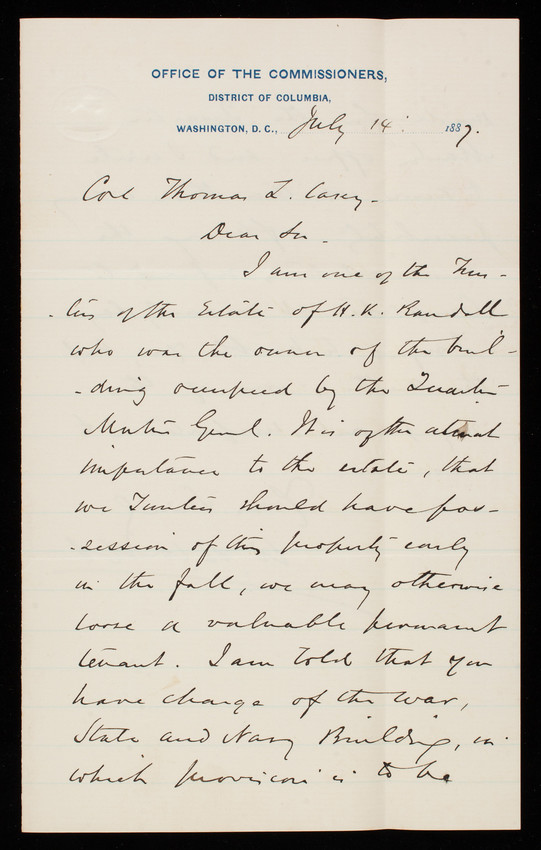 OFFICE OF THE COMMISSIONERS,
DISTRICT OF COLUMBIA,
WASHINGTON, D. C., July 14. 1887.
Col Thomas L. Casey.
Dear Sir.
I am one of the Trus-
-tees of the Estate of H. K. Randall
who was the owner of the buil-
-ding occupied by the Quarter
Master Genl. It is of the utmost
importance to the estate, that
we Trustees should have pos-
-session of this property early
in the fall, we may otherwise
loose a valuable permanent
tenant. I am told that you
have charge of the War,
State and Navy Building, in
which provision is to be